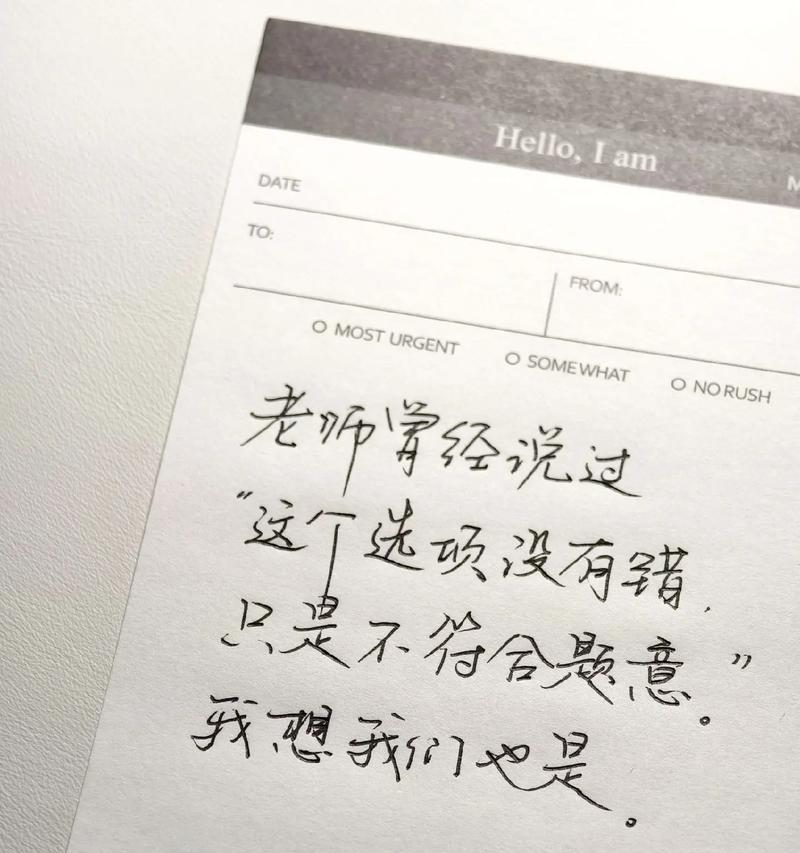 Hello, I am
DATE
TO:
FROM:
MOST URGENT
SOMEWHAT
NO RUSH
老师曾经说过
“这个选项没有错,
只是不符合题意。”
我想我们也是。